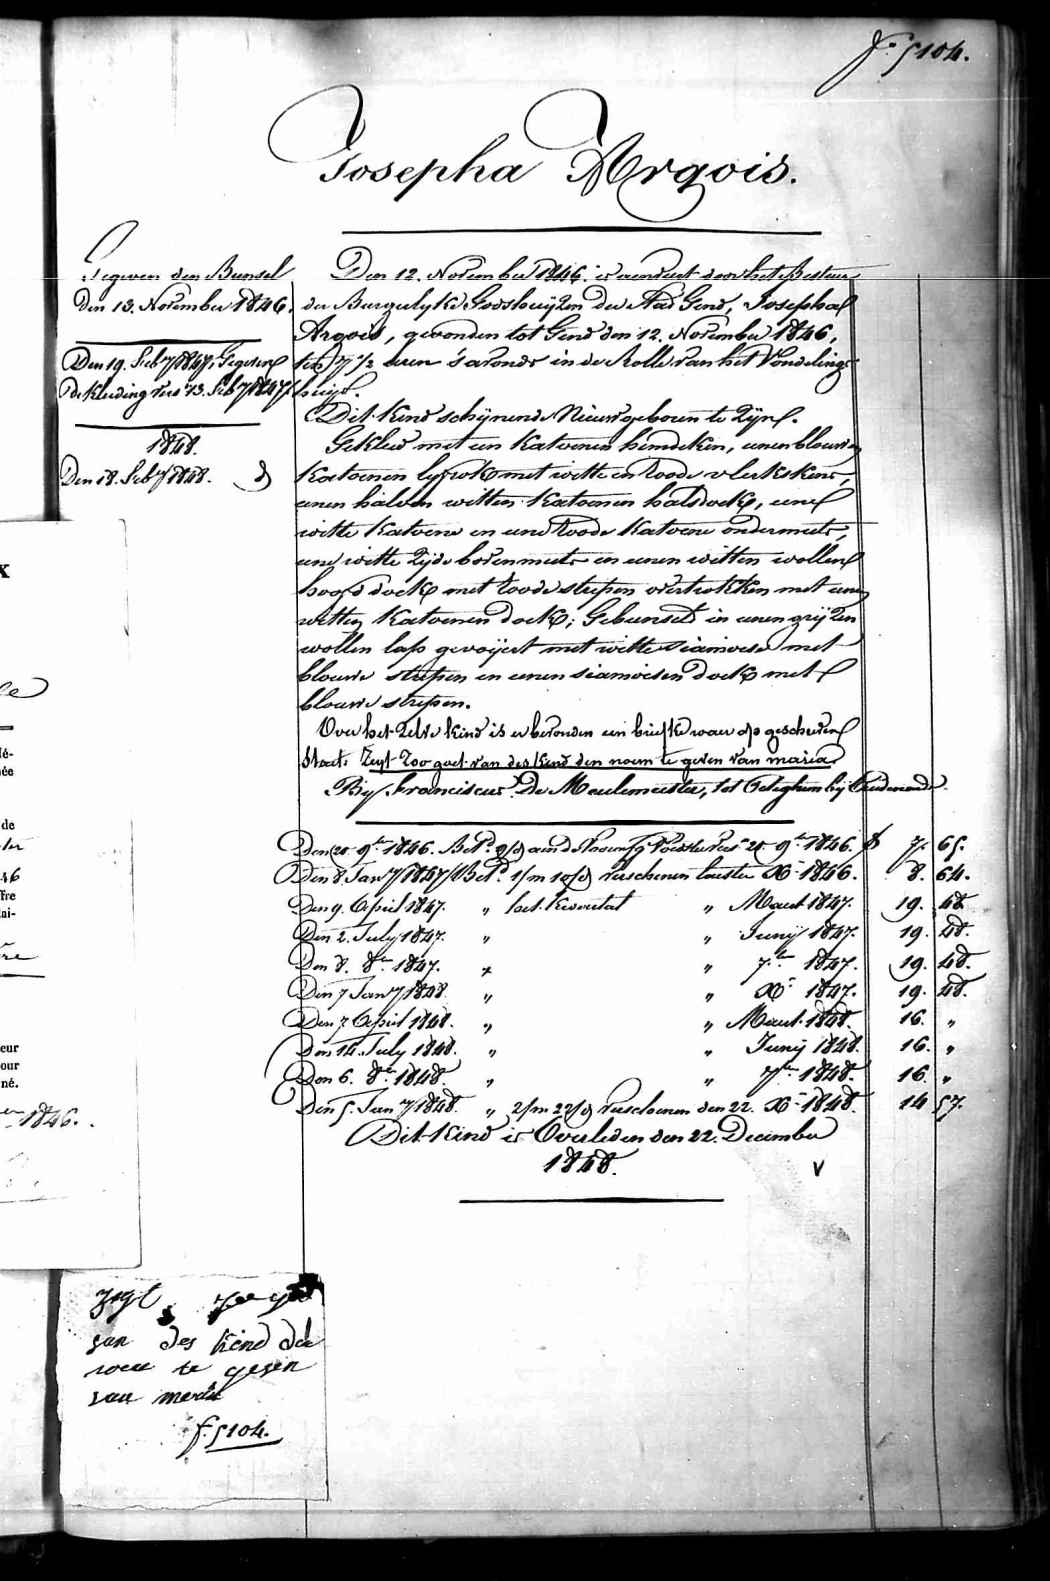 f° 5104.
Josepha Arqois.
Gegeven den Bunsel
den 13. November 1846.
Den 19. Feby 1847, Gegeven
de kleeding vers 13. Feby 1847.
1848.
Den 18. Feby 1848. d
Den 12. November 1846. is aenveert door het Bestuer
der Burgelyke Godshuijzen der Stad Gend, Josepha
Arqois, gevonden tot Gend den 12. November 1846,
ten 7 1/2 uren s'avonds in de Rolle van het Vondelings
huijs.
Dit Kind schijnende Nieuwgeboren te Zijn.
Gekleed met een Katoenen hemdeken, eenen blouwen
Katoenen lyfrok met witte en roode vlekskens,
eenen halven witten Katoenen halsdoek, eene
witte Katoene en eene roode Katoene ondermuts,
eene witte Zijde bovenmuts en eenen witten wollen
hoofddoek met roode strepen overtrokken met eenen
witten Katoenen doek; Gebunseld in eenen grijzen
wollen lap gevoijert met witte siamoise met
blouwe strepen en eenen siamoisen doek met
blouwe strepen.
Over het Zelve kind is er bevonden een briefke waer op geschreven
staet: Zegt Zoo goet van des kend den naem te geven van maria
By Franciscus De Meulemeester, tot Eeteghem bij Audenaerde.
Den 20 9bre 1846. Bet.d 9/d aen de Voedster vers 21 9bre 1846. f 7. 65.
Den 8 Jany 1847 Bet.d 1/m 10/d verschenen laesten Xbre 1846. 8. 64.
Den 9. April 1847. „ het Kwartal „ Maert 1847. 19. 48.
Den 2. July 1847. „ „ Junij 1847. 19. 48.
Den 8. 8bre 1847. „ „ 7bre 1847. 19. 48.
Den 7 Jany 1848 „ „ Xbre 1847. 19. 48.
Den 7 April 1848. „ „ Maert 1848. 16. „
Den 14. July 1848. „ „ Junij 1848. 16. „
Den 6. 8bre 1848. „ „ 7bre 1848. 16. „
Den 5. Jany 1848. „ 2/m 22/d verschenen den 22. Xbre 1848. 14 57.
Dit Kind is Overleden den 22. December
1848. v
zegt
van des kend den
te geven
van
f° 5104.
X
de
46
ffre
lai-
eur
our
né.
1846.